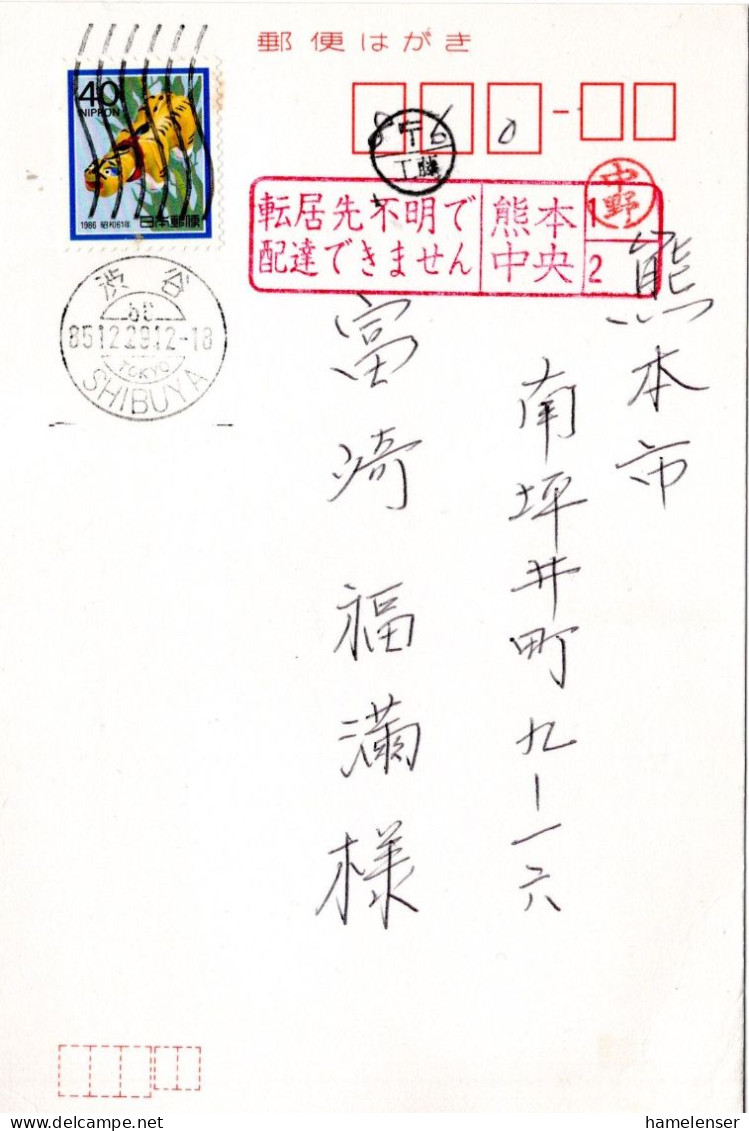 郵便はがき
40
NIPPON
1986 昭和61年 日本郵便
860
工藤
中野
転居先不明で
配達できません
熊本
中央
1
2
渋谷
85 12.29 12-18
TOKYO
SHIBUYA
熊本市
南坪井町九-一六
富崎福満様
hamelenser